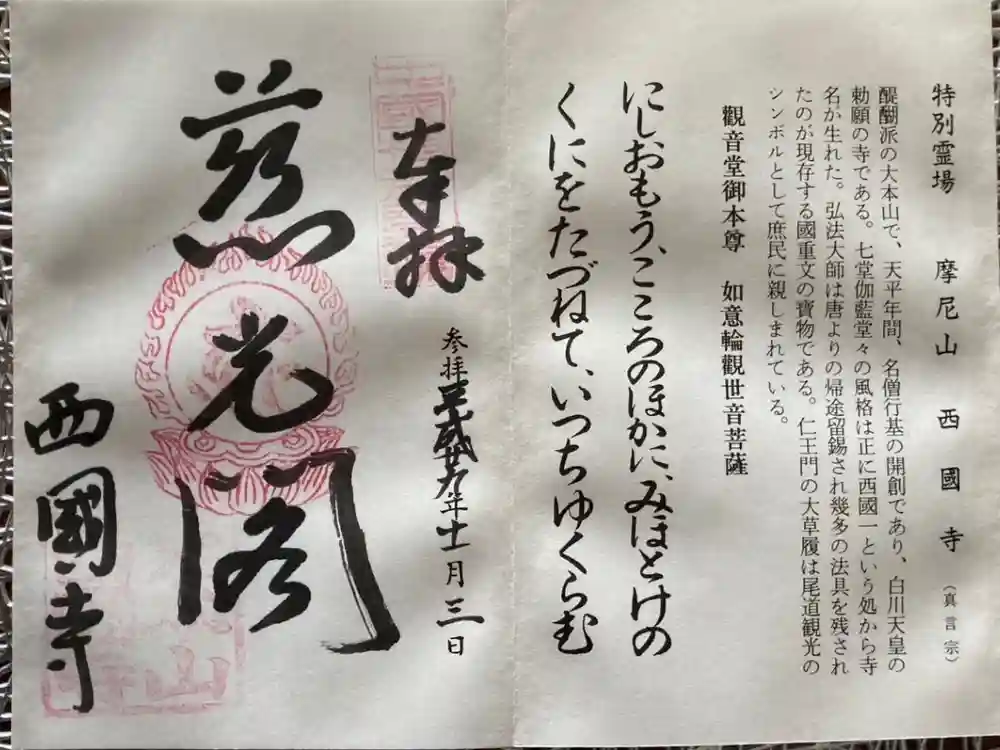 特別霊場 摩尼山 西國寺(真言宗)
醍醐派の大本山で、天平年間、名僧行基の開創であり、白川天皇の
勅願の寺である。七堂伽藍堂々の風格は正に西國一という処から寺
名が生れた。弘法大師は唐よりの帰途留錫され幾多の法具を残され
たのが現存する國重文の寶物である。仁王門の大草履は尾道観光の
シンボルとして庶民に親しまれている。
觀音堂御本尊 如意輪觀世音菩薩
にしおもう、こころのほかに、みほとけの
くにをたづねて、いつちゆくらむ
奉拝
参拝 年十一月三日
慈光閣
西國寺